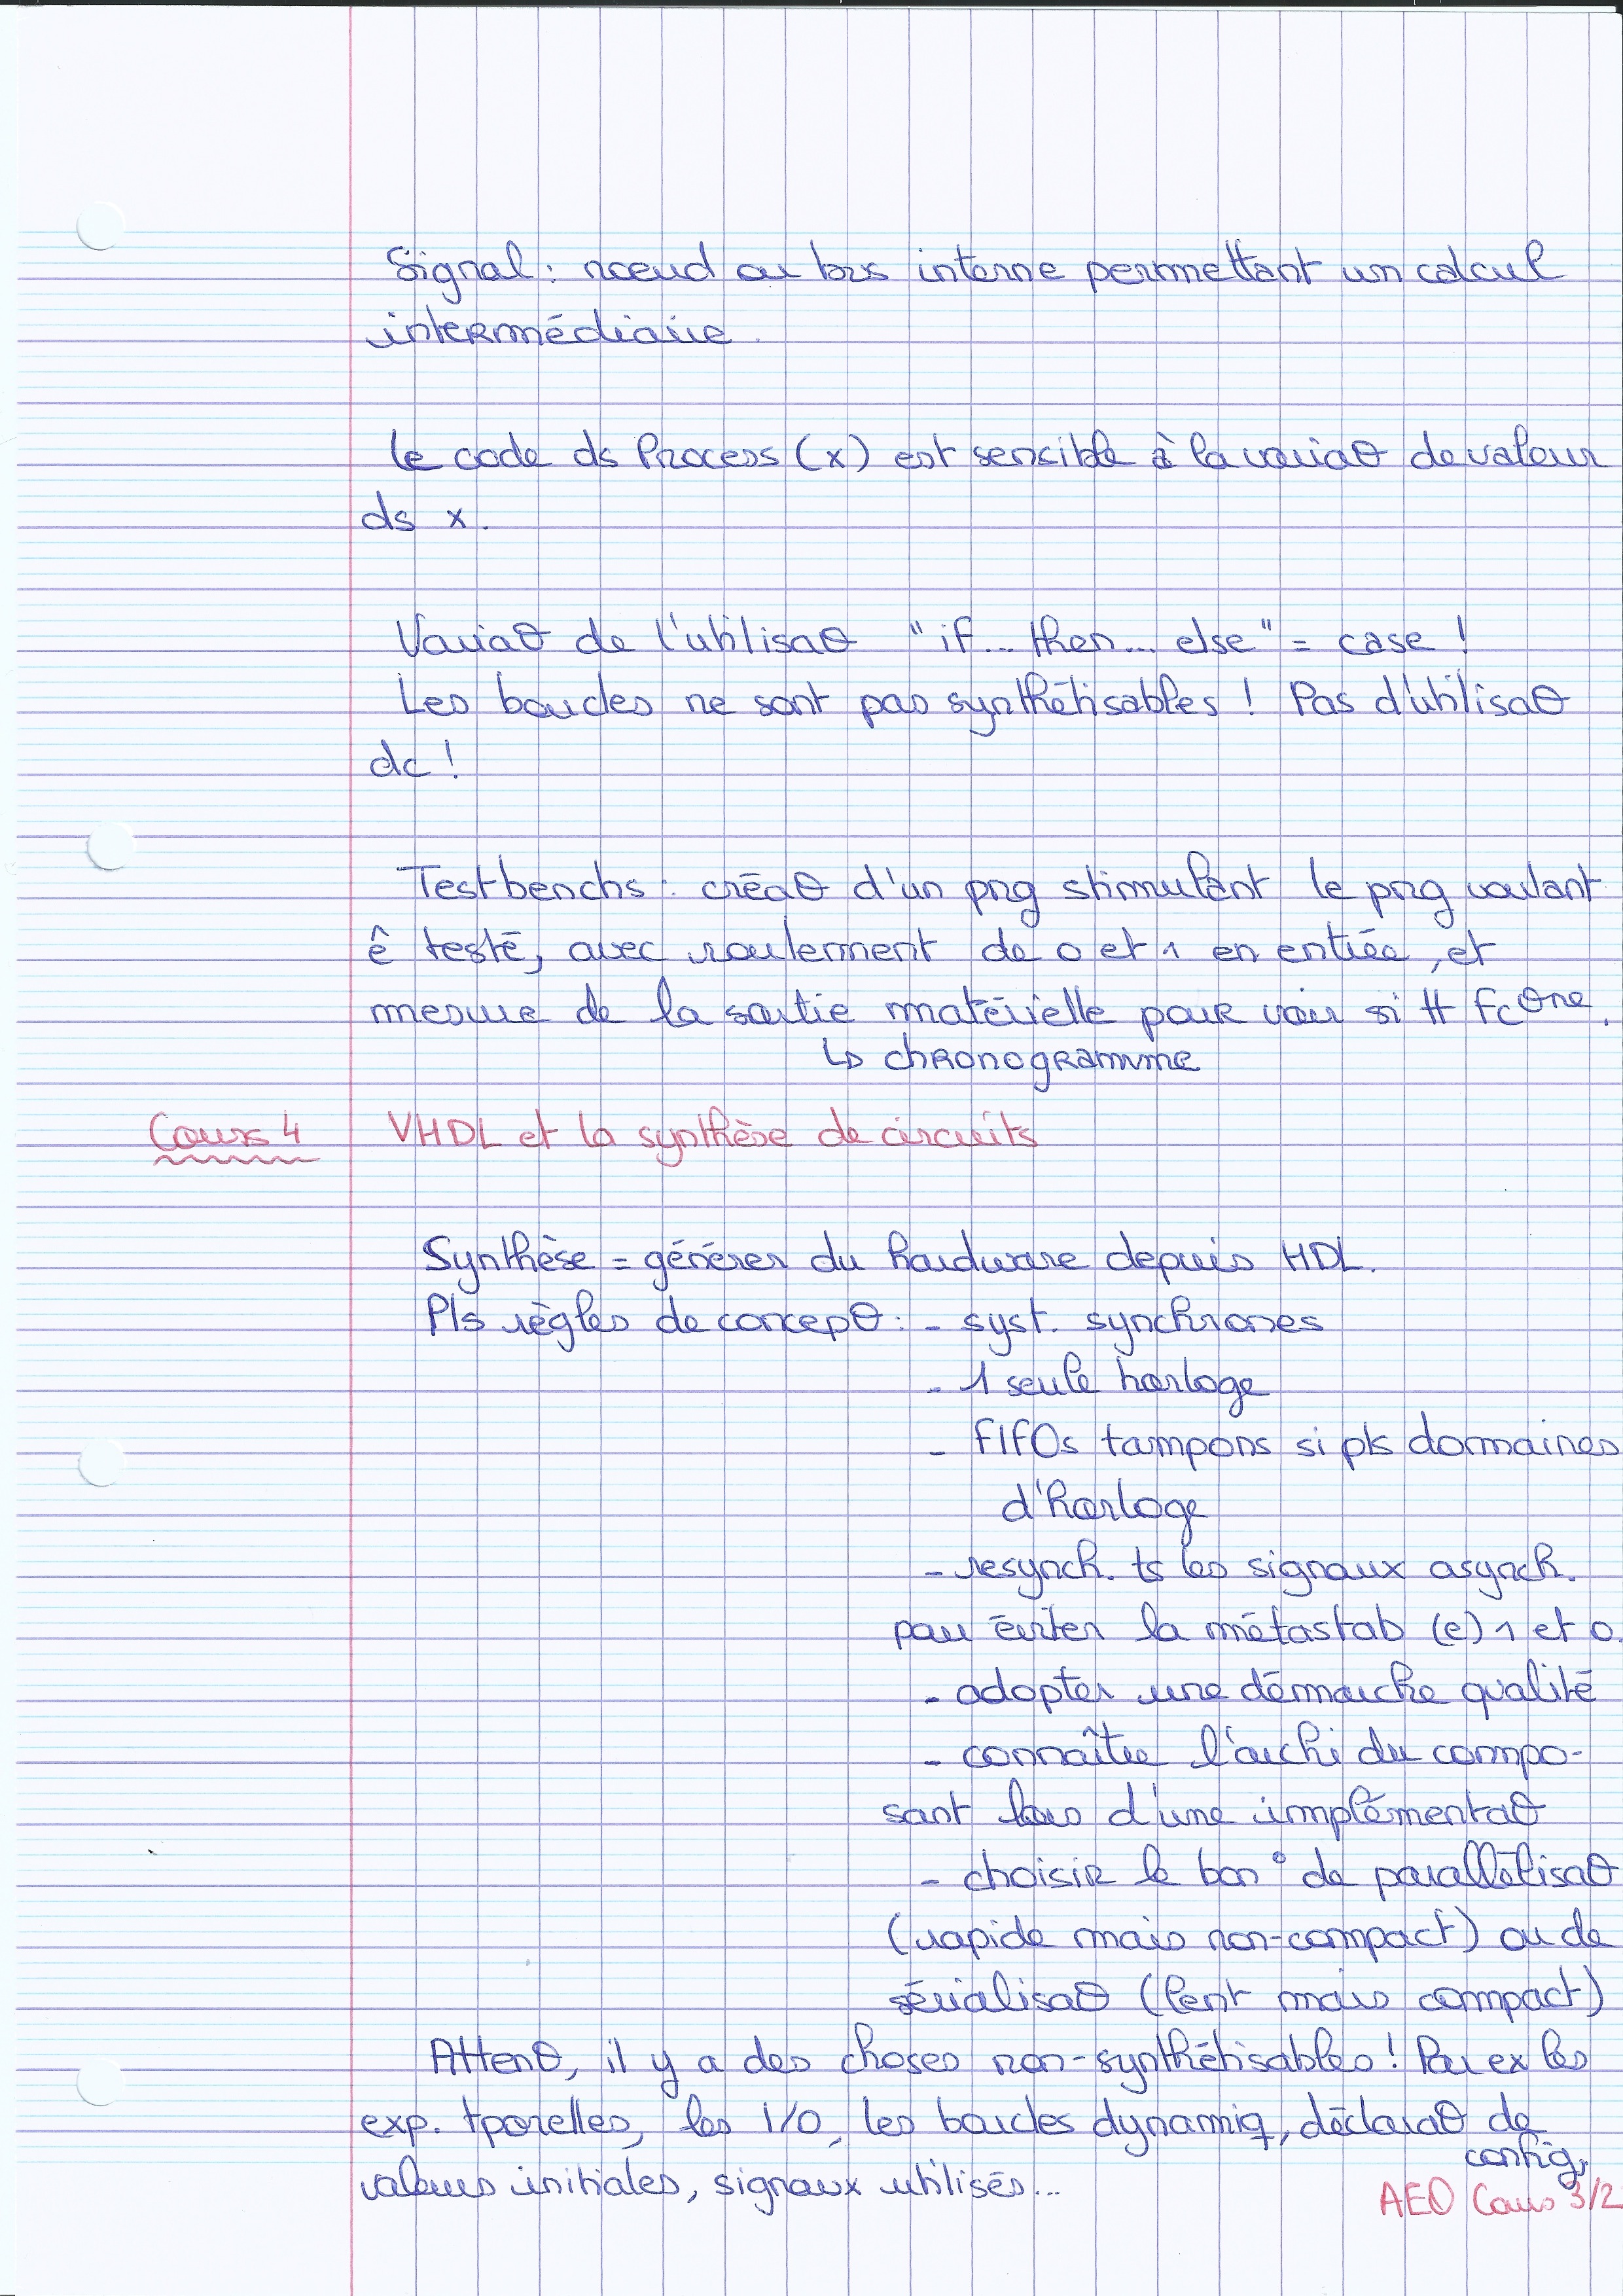 Signal : nœud ou bus interne permettant un calcul
intermédiaire.
Le code ds Process (x) est sensible à la variaθ de valeur
ds x.
Variaθ de l'utilisaθ "if... then... else" = case !
Les boucles ne sont pas synthétisables ! Pas d'utilisaθ
dc !
Testbenchs : créaθ d'un prg stimulant le prg voulant
ê testé, avec roulement de 0 et 1 en entrée, et
mesure de la sortie matérielle pour voir si tt fcθne.
↳ chronogramme
Cours 4 VHDL et la synthèse de circuits
Synthèse = générer du hardware depuis HDL.
Pls règles de concepθ : - syst. synchrones
- 1 seule horloge
- FIFOs tampons si pls domaines
d'horloge
- resynch. ts les signaux asynch.
pour éviter la métastab (e) 1 et 0.
- adopter une démarche qualité
- connaître l'archi du compo-
sant lors d'une implémentaθ
- choisir le bon ° de parallélisaθ
(rapide mais non-compact) ou de
sérialisaθ (lent mais compact)
Attenθ, il y a des choses non-synthétisables ! Par ex les
exp. tporelles, les I/O, les boucles dynamiq, déclaraθ de
config,
valeurs initiales, signaux utilisés...
AEO Cours 3/2